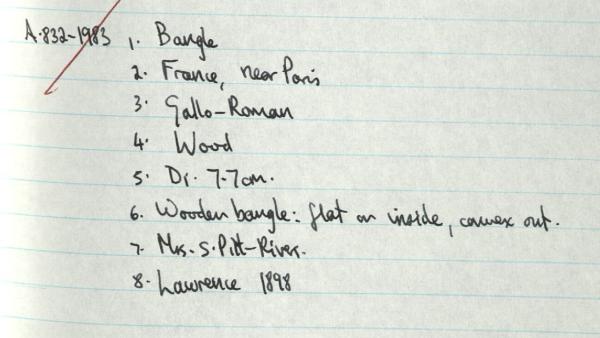 A.832-1983 1. Bangle
2. France, near Paris
3. Gallo-Roman
4. Wood
5. Dr. 7.7cm.
6. Wooden bangle: flat on inside, convex out.
7. Mrs. S. Pitt-Rivers.
8. Lawrence 1898